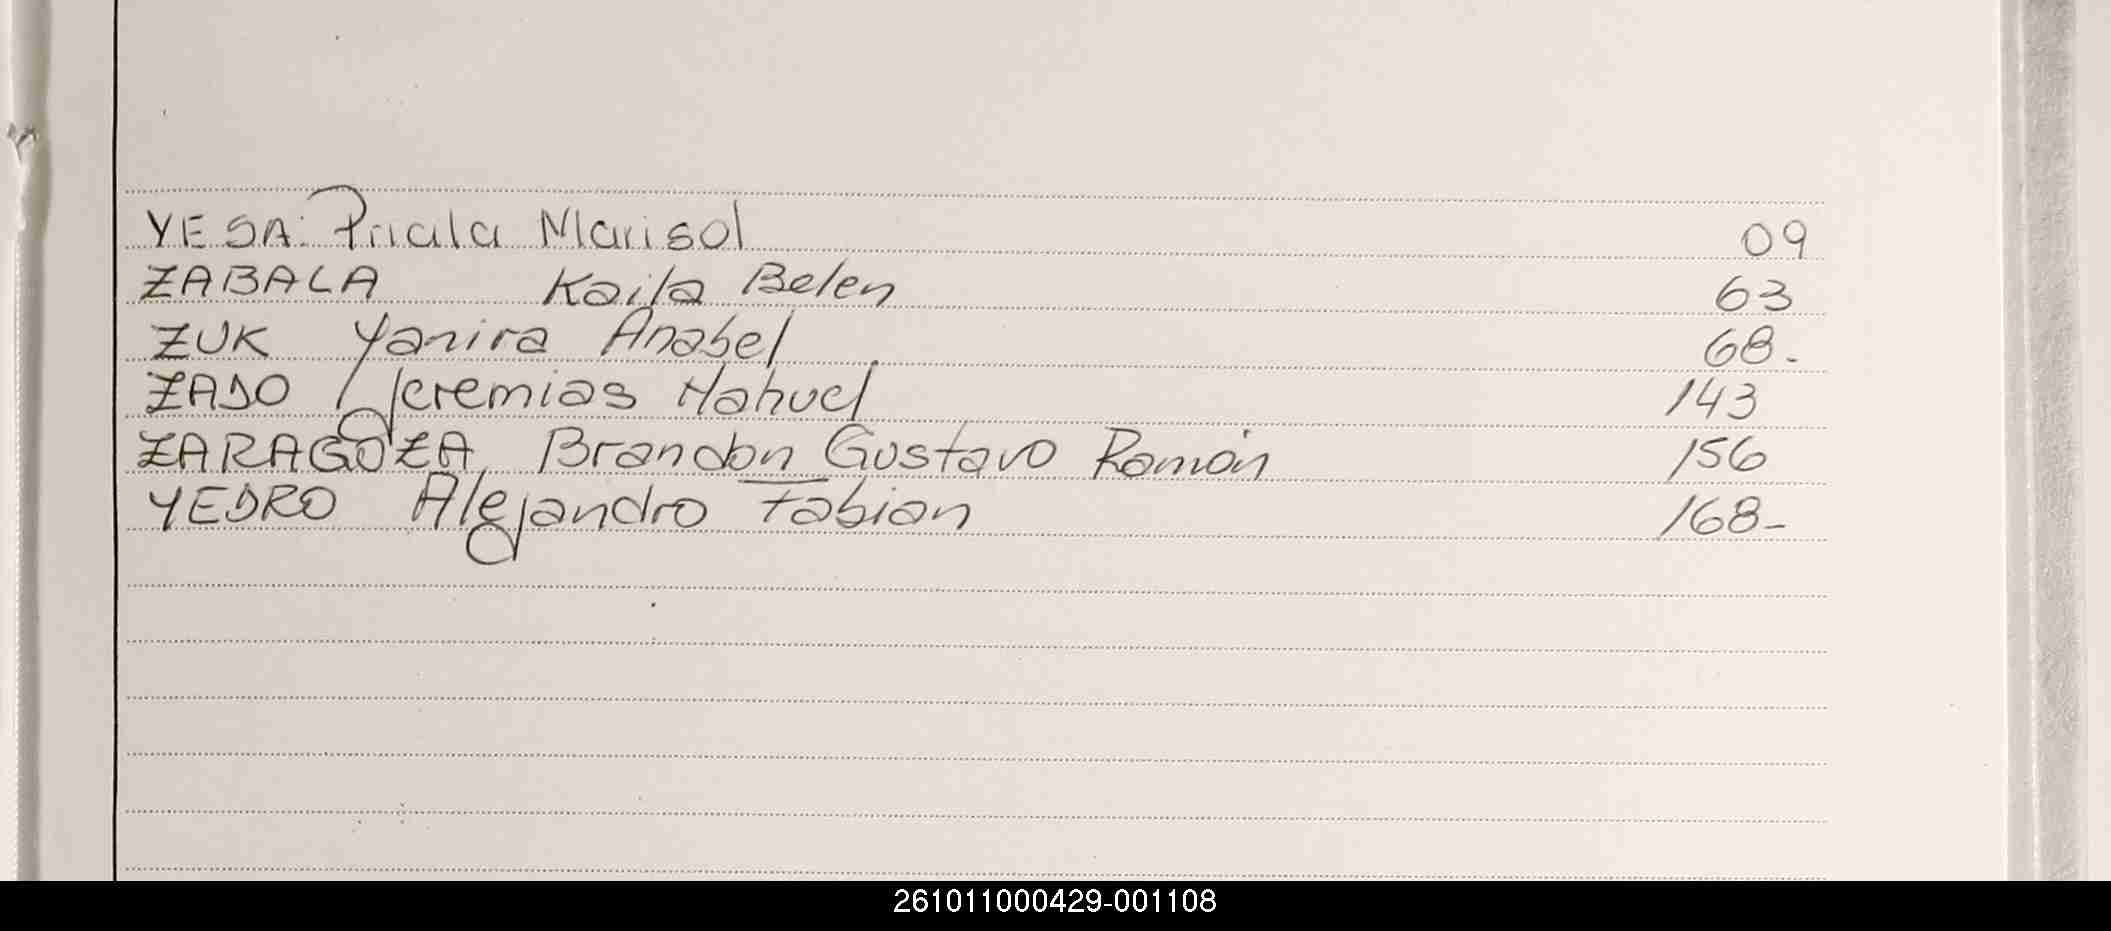 YESA: Priala Marisol 09
ZABALA Kaila Belen 63
ZUK Yanira Anabel 68.
ZADO Jeremias Nahuel 143
ZARAGOZA Brandon Gustavo Ramón 156
YEDRO Alejandro Fabian 168-
261011000429-001108